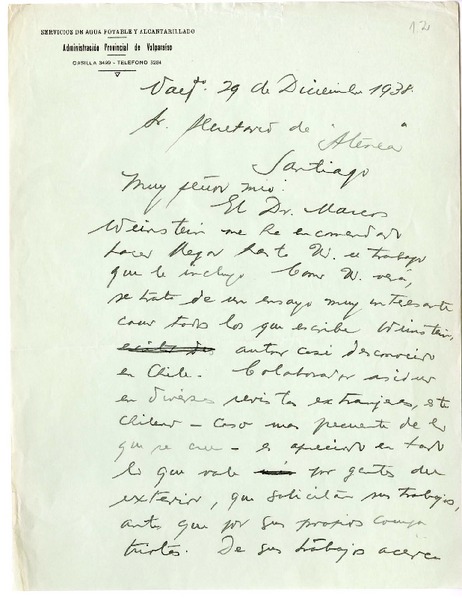 12
SERVICIOS DE AGUA POTABLE Y ALCANTARILLADO
Administración Provincial de Valparaíso
CASILLA 3499 - TELEFONO 5284
Valpº. 29 de Diciembre 1938.
Sr. Secretario de "Atenea"
Santiago
Muy señor mío:
El Dr. Marcos
Weinstein me ha encomendado
hacer llegar hasta U. el trabajo
que le incluyo. Como U. verá,
se trata de un ensayo muy interesante
como todo los que escribe Weinstein,
autor casi desconocido
en Chile. Colaborador asiduo
en diversas revistas extranjeras, este
chileno - caso mas frecuente de lo
que se cree - es apreciado en todo
lo que vale por gentes del
exterior, que solicitan sus trabajos,
antes que por sus propios compa
triotas. De sus trabajos acerca